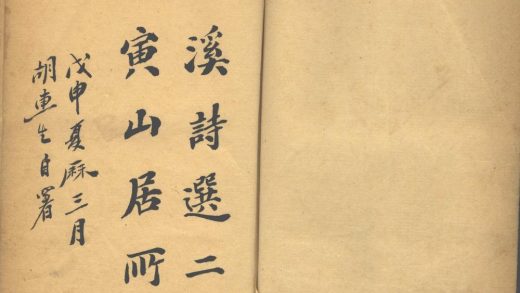 溪詩選二
寅山居所
戊申夏厤三月
胡惠生自署